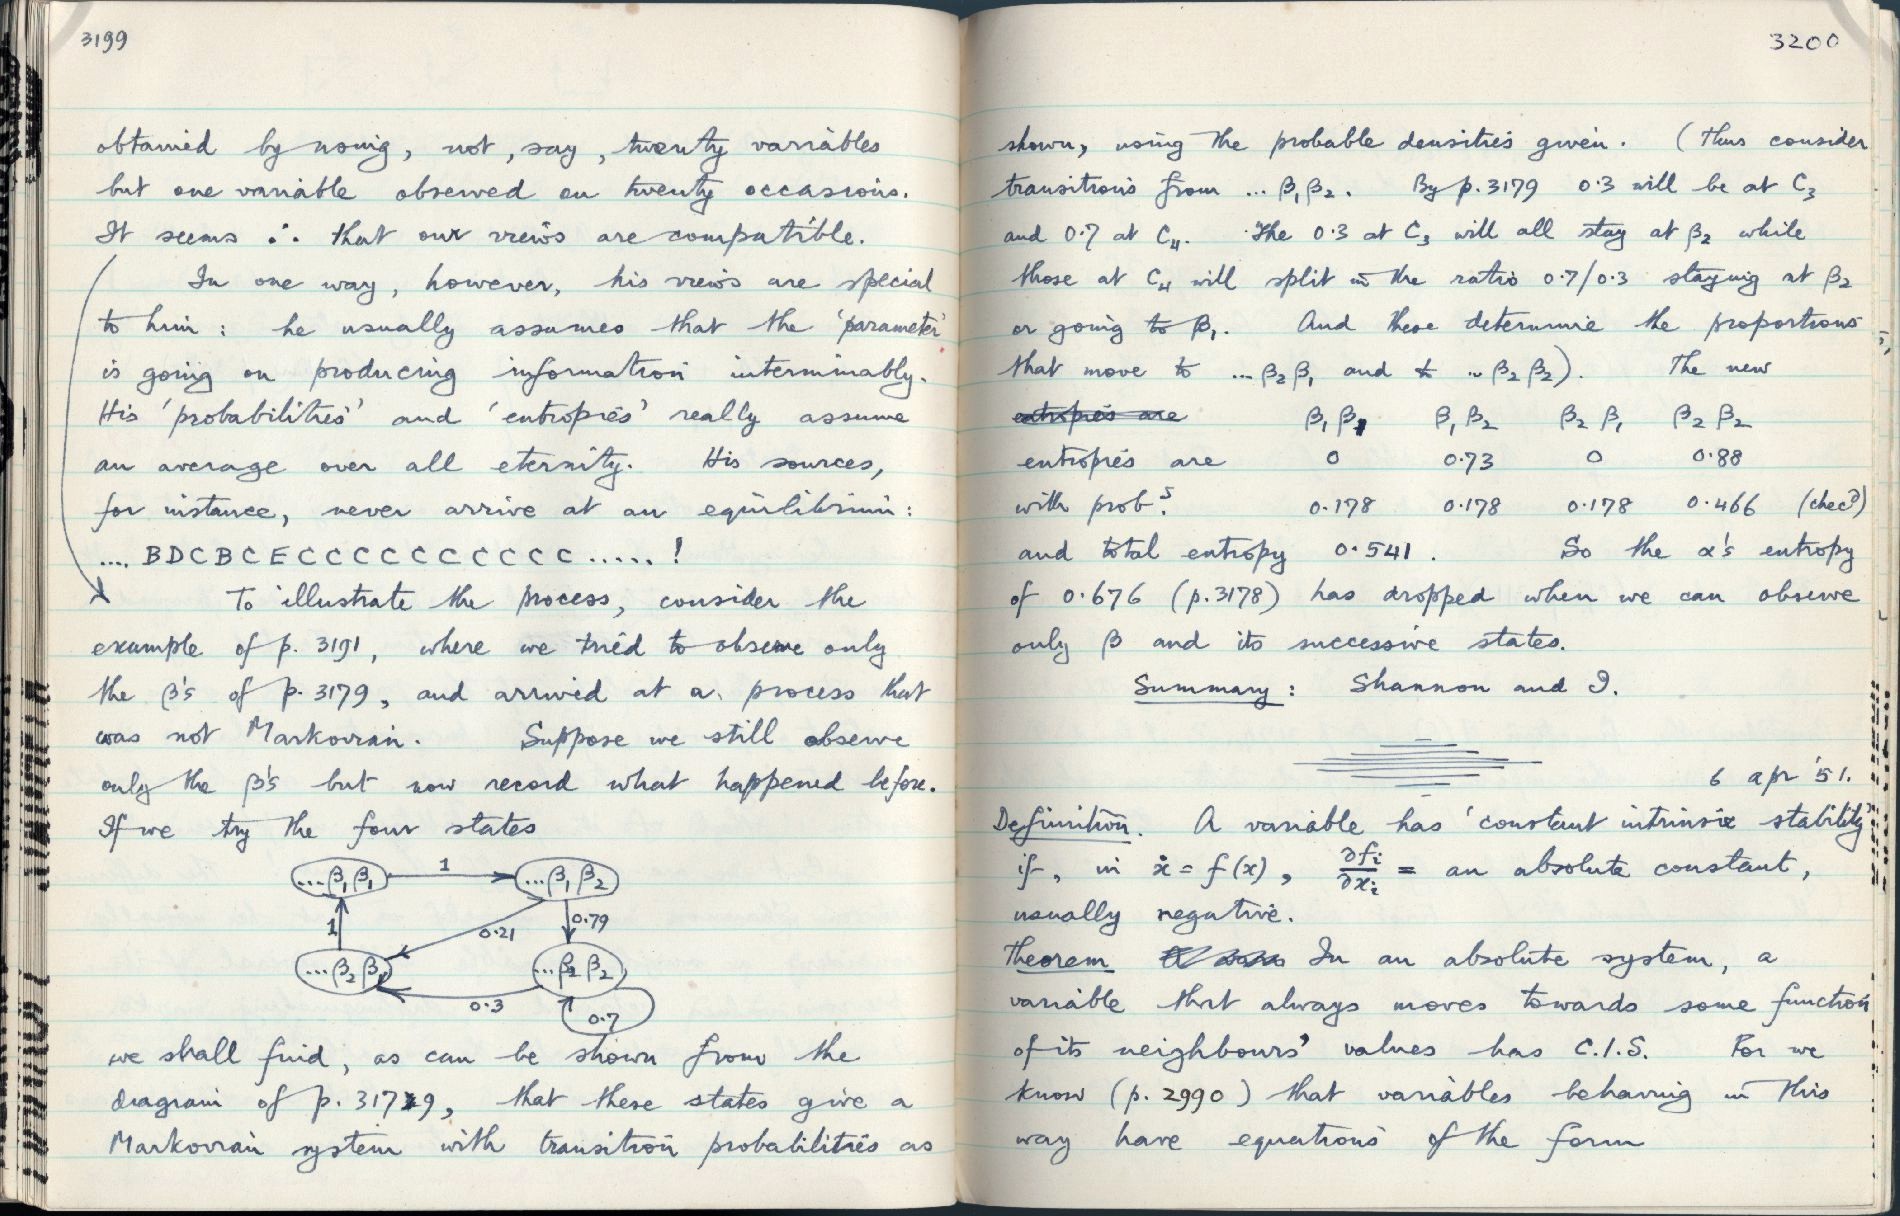 3199
obtained by using, not, say, twenty variables
but one variable observed on twenty occasions.
It seems ∴ that our views are compatible.
In one way, however, his views are special
to him: he usually assumes that the 'parameter'
is going on producing information interminably.
His 'probabilities' and 'entropies' really assume
an average over all eternity. His sources,
for instance, never arrive at an equilibrium:
.... BDCBCECCCCCCCCCCC.....!
To illustrate the process, consider the
example of p. 3191, where we tried to observe only
the β's of p. 3179, and arrived at a process that
was not Markovian. Suppose we still observe
only the β's but now record what happened before.
If we try the four states
...β₁β₁ 1 ...β₁β₂
1 0.21 0.79
...β₂β₁ ...β₂β₂
0.3 0.7
we shall find, as can be shown from the
diagram of p. 3179, that these states give a
Markovian system with transition probabilities as
3200
shown, using the probable densities given. (Thus consider
transitions from ... β₁β₂. By p. 3179 0.3 will be at C₃
and 0.7 at C₄. The 0.3 at C₃ will all stay at β₂ while
those at C₄ will split in the ratio 0.7/0.3 staying at β₂
or going to β₁. And these determine the proportions
that move to ...β₂β₁ and to ...β₂β₂). The new
entropies are β₁β₁ β₁β₂ β₂β₁ β₂β₂
entropies are 0 0.73 0 0.88
with prob.s 0.178 0.178 0.178 0.466 (check)
and total entropy 0.541. So the α's entropy
of 0.676 (p. 3178) has dropped when we can observe
only β and its successive states.
Summary: Shannon and I.
6 apr '51.
Definition. A variable has 'constant intrinsic stability'
if, in ẋ = f(x), ∂fᵢ/∂xᵢ = an absolute constant,
usually negative.
Theorem In an absolute system, a
variable that always moves towards some function
of its neighbours' values has C.I.S. For we
know (p. 2990) that variables behaving in this
way have equations of the form